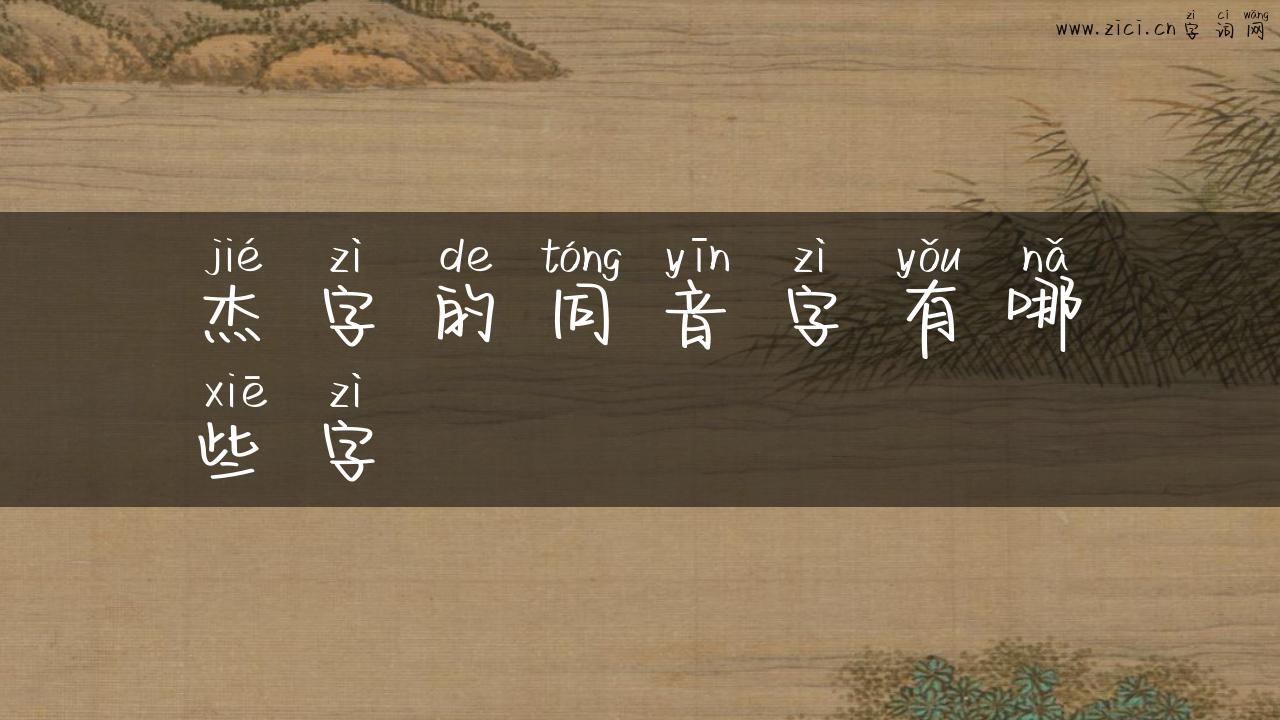 zì cí wǎng
www.zici.cn 字 词 网
jié zì de tóng yīn zì yǒu nǎ
杰 字 的 同 音 字 有 哪
xiē zì
些 字